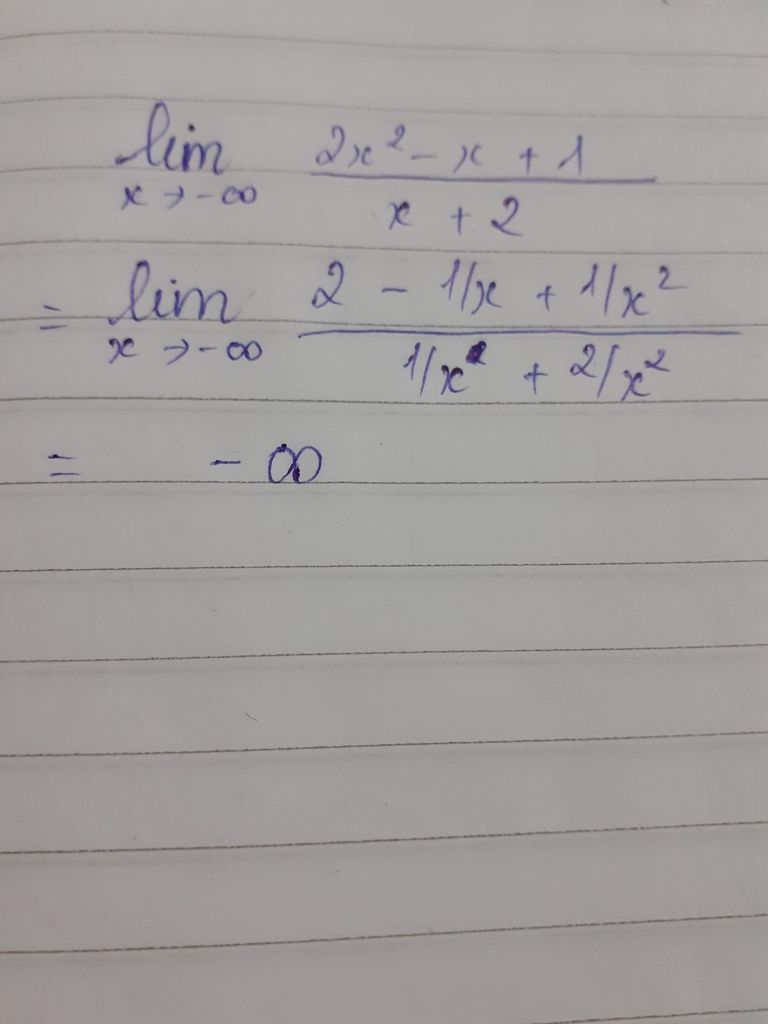 lim 2x² - x + 1
x → -∞ x + 2
= lim 2 - 1/x + 1/x²
x → -∞ 1/x + 2/x²
= - ∞